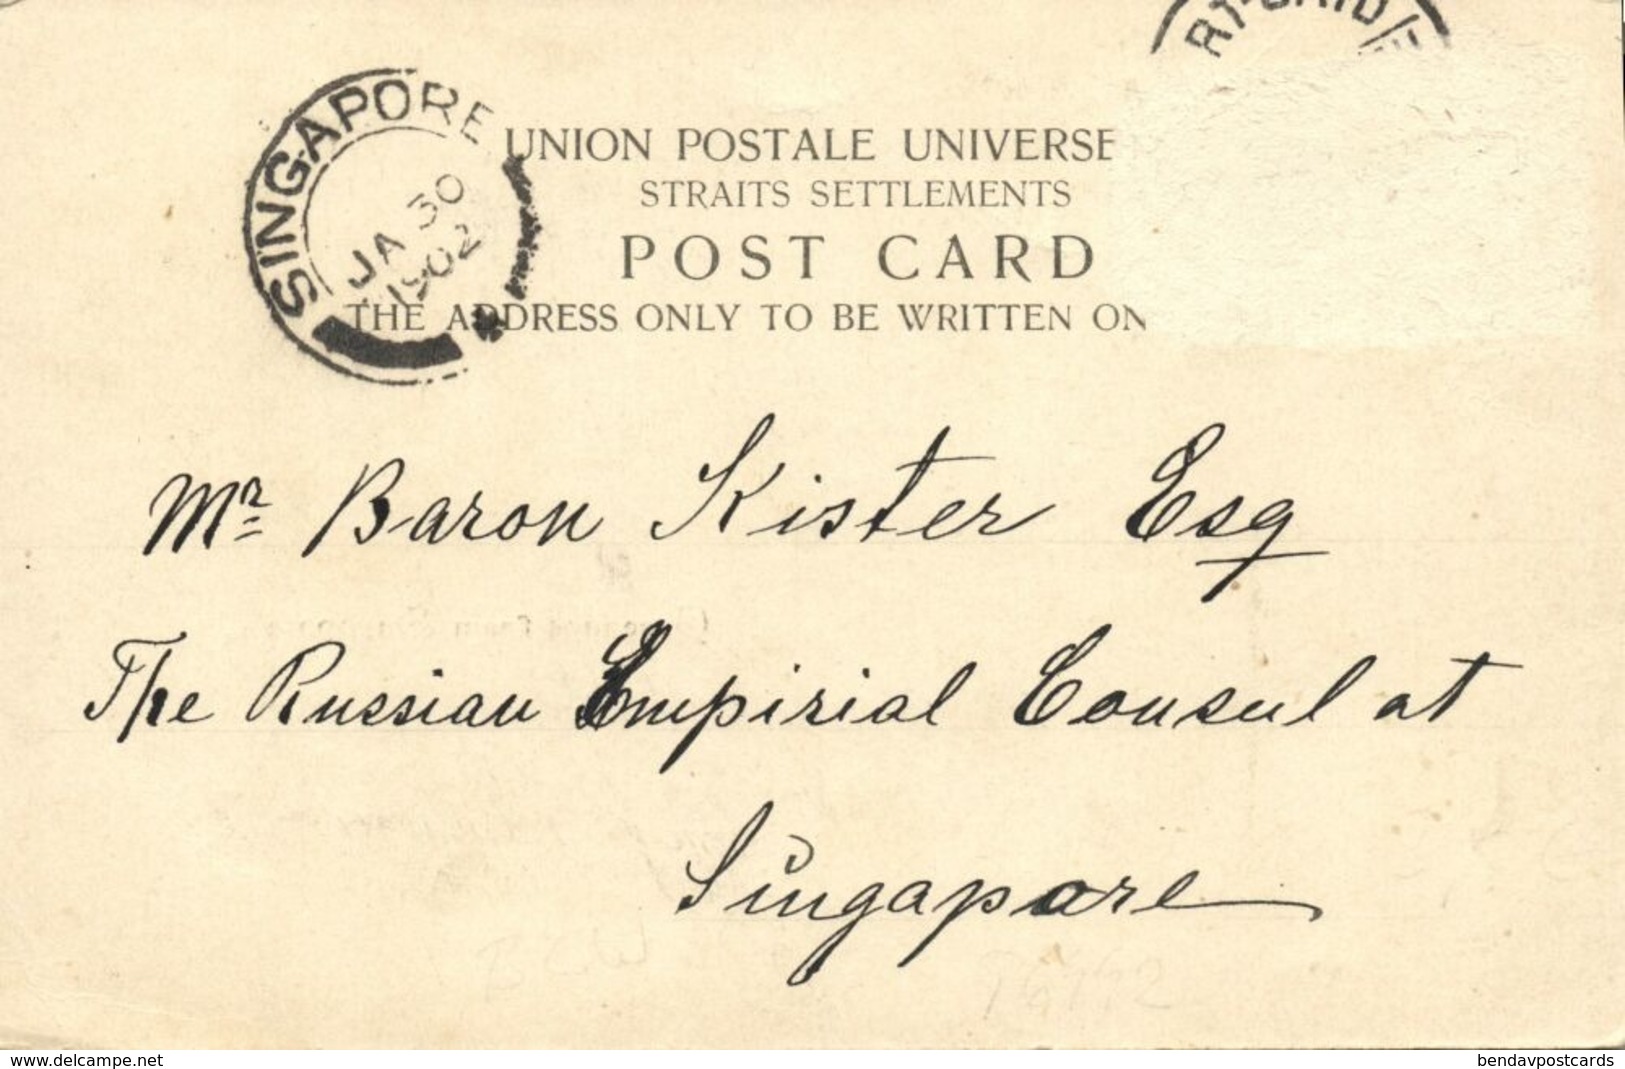 RT-SAID
SINGAPORE
JA 30
1902
UNION POSTALE UNIVERSE
STRAITS SETTLEMENTS
POST CARD
THE ADDRESS ONLY TO BE WRITTEN ON
Mr Baron Kister Esq
The Russian Empirial Consul at
Singapore
www.delcampe.net
bendavpostcards